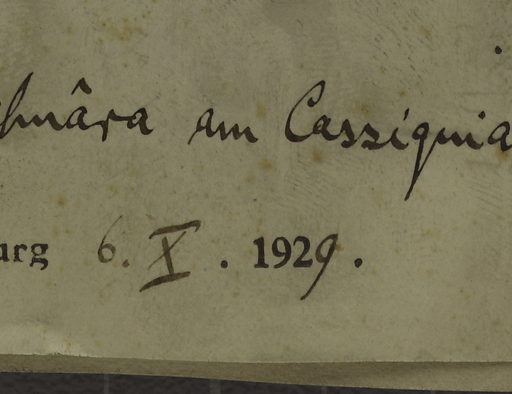 am Cassiquia
urg 6. X. 1929.